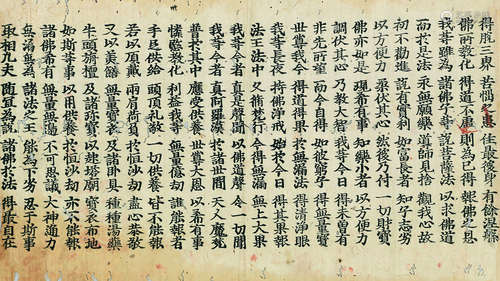 得脫三界苦惱之患住最後身有餘涅槃
佛所教化得道不虛則為已得報佛之恩
我等雖為諸佛子等說菩薩法以求佛道
而於是法永無願樂導師見捨觀我心故
初不勸進說有實利如富長者知子志劣
以方便力柔伏其心然後乃付一切財寶
佛亦如是現希有事知樂小者以方便力
調伏其心乃教大智我等今日得未曾有
非先所望而今自得如彼窮子得無量寶
世尊我今得道得果於無漏法得清淨眼
我等長夜持佛淨戒始於今日得其果報
法王法中久修梵行今得無漏無上大果
我等今者真是聲聞以佛道聲令一切聞
我等今者真阿羅漢於諸世間天人魔梵
普於其中應受供養世尊大恩以希有事
憐愍教化利益我等無量億劫誰能報者
手足供給頭頂禮敬一切供養皆不能報
若以頂戴兩肩荷負於恒沙劫盡心恭敬
又以美膳無量寶衣及諸臥具種種湯藥
牛頭栴檀及諸珍寶以起塔廟寶衣布地
如斯等事以用供養於恒沙劫亦不能報
諸佛希有無量無邊不可思議大神通力
無漏無為諸法之王能為下劣忍于斯事
取相凡夫隨宜為說諸佛於法得最自在